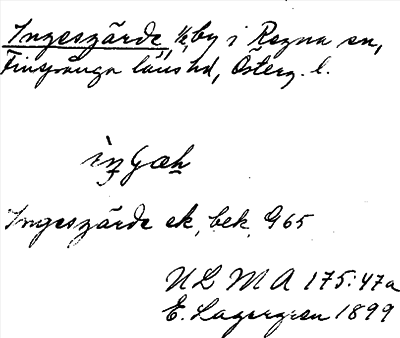 Ingesgärde, ½ by i Regna sn,
Finspånga läns hd, Österg. l.
Ingesgärde ek, bek. 965
ULMA 175:47a
E. Lagergren 1899